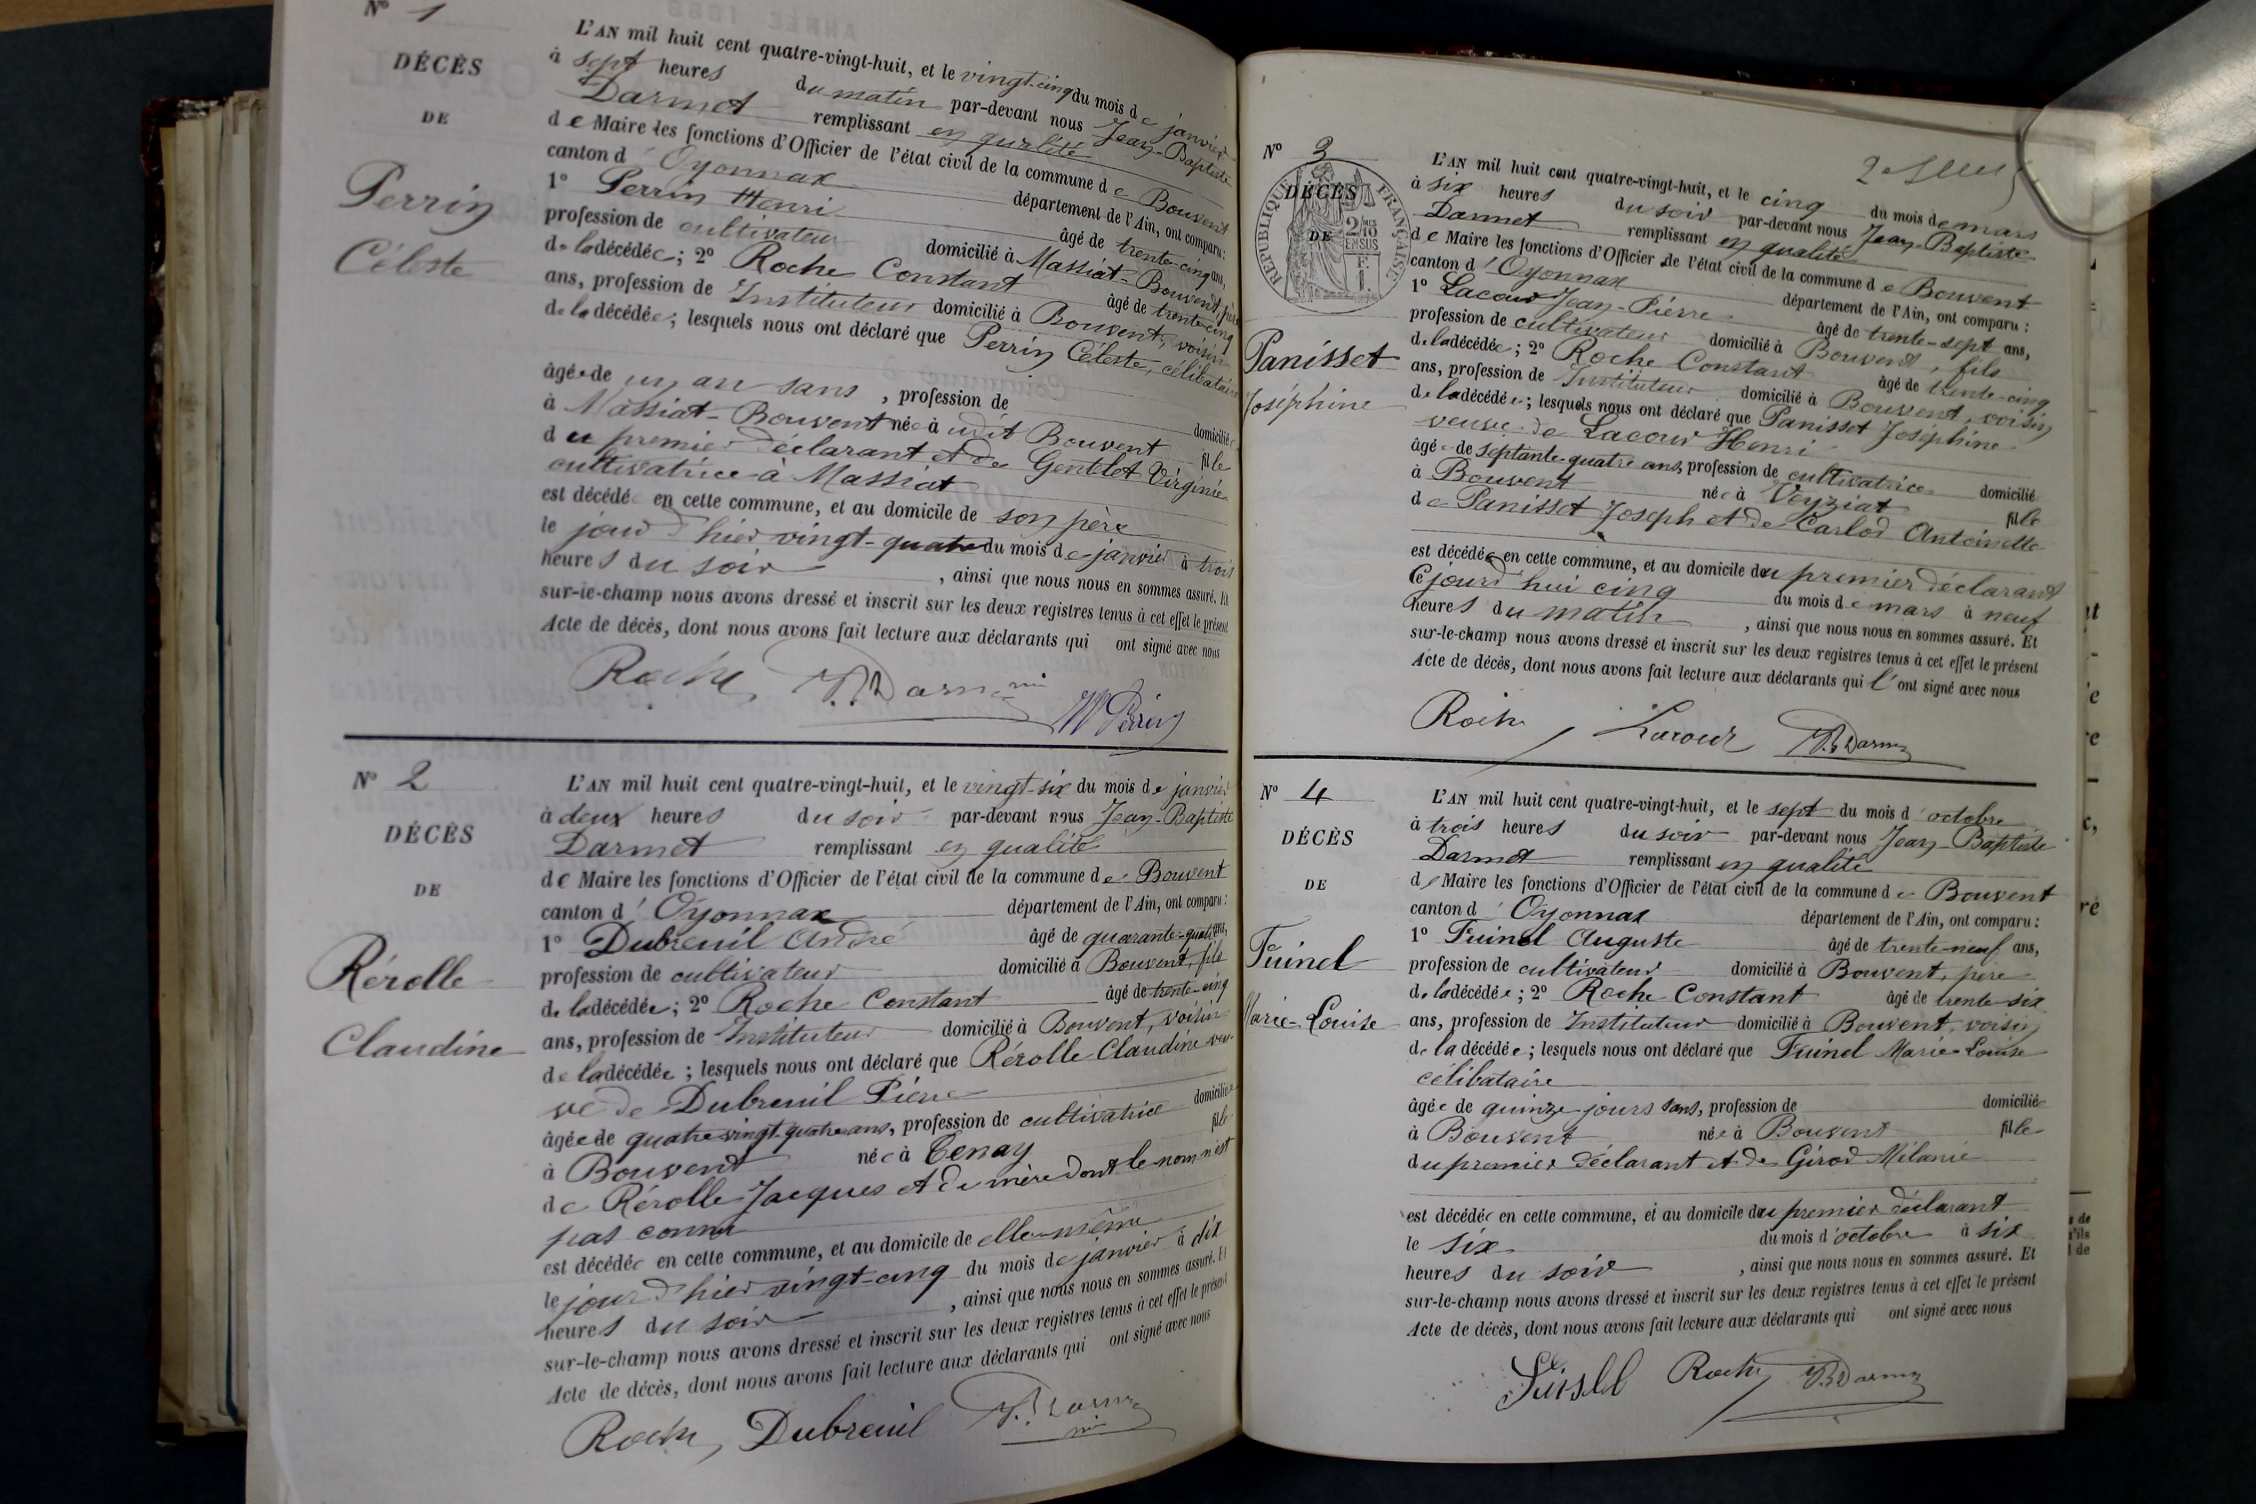 N° 1
DÉCÈS
DE
Perrin
Céleste
L'AN mil huit cent quatre-vingt-huit, et le vingt-cinq du mois de janvier
à sept heures du matin par-devant nous Jean-Baptiste
Darmet remplissant en qualité
de Maire les fonctions d'Officier de l'état civil de la commune de Bouvent
canton d'Oyonnax département de l'Ain, ont comparu :
1° Perrin Henri âgé de trente-cinq ans,
profession de cultivateur domicilié à Massiat-Bouvent, père
de la décédée ; 2° Roche Constant âgé de trente-cinq
ans, profession de Instituteur domicilié à Bouvent, voisin
de la décédée ; lesquels nous ont déclaré que Perrin Céleste, célibataire
âgée de un an sans , profession de domiciliée
à Massiat-Bouvent née à udit Bouvent fille
du premier déclarant et de Gentelet Virginie
cultivatrice à Massiat
est décédée en cette commune, et au domicile de son père
le jour d'hier vingt-quatre du mois de janvier à trois
heures du soir , ainsi que nous nous en sommes assuré. Et
sur-le-champ nous avons dressé et inscrit sur les deux registres tenus à cet effet le présent
Acte de décès, dont nous avons fait lecture aux déclarants qui ont signé avec nous
Roche JB Darmet
H Perrin
N° 2
DÉCÈS
DE
Rérolle
Claudine
L'AN mil huit cent quatre-vingt-huit, et le vingt-six du mois de janvier
à deux heures du soir par-devant nous Jean-Baptiste
Darmet remplissant en qualité
de Maire les fonctions d'Officier de l'état civil de la commune de Bouvent
canton d'Oyonnax département de l'Ain, ont comparu :
1° Dubreuil André âgé de quarante-quatre ans,
profession de cultivateur domicilié à Bouvent, fils
de la décédée ; 2° Roche Constant âgé de trente-cinq
ans, profession de Instituteur domicilié à Bouvent, voisin
de la décédée ; lesquels nous ont déclaré que Rérolle Claudine veu-
ve de Dubreuil Pierre
âgée de quatre-vingt-quatre ans, profession de cultivatrice domiciliée
à Bouvent née à Tenay fille
de Rérolle Jacques et de mère dont le nom n'est
pas connu
est décédée en cette commune, et au domicile de elle-même
le jour d'hier vingt-cinq du mois de janvier à dix
heures du soir , ainsi que nous nous en sommes assuré. Et
sur-le-champ nous avons dressé et inscrit sur les deux registres tenus à cet effet le présent
Acte de décès, dont nous avons fait lecture aux déclarants qui ont signé avec nous
Roche Dubreuil JB Darmet
N° 3
DÉCÈS
DE
RÉPUBLIQUE FRANÇAISE
2/10 EN SUS
F. 1.
Panisset
Joséphine
L'AN mil huit cent quatre-vingt-huit, et le cinq du mois de mars
à six heures du soir par-devant nous Jean-Baptiste
Darmet remplissant en qualité
de Maire les fonctions d'Officier de l'état civil de la commune de Bouvent
canton d'Oyonnax département de l'Ain, ont comparu :
1° Lacour Jean-Pierre âgé de trente-sept ans,
profession de cultivateur domicilié à Bouvent, fils
de la décédée ; 2° Roche Constant âgé de trente-cinq
ans, profession de Instituteur domicilié à Bouvent, voisin
de la décédée ; lesquels nous ont déclaré que Panisset Joséphine
veuve de Lacour Henri
âgée de septante-quatre ans, profession de cultivatrice domiciliée
à Bouvent née à Veyziat fille
de Panisset Joseph et de Carlod Antoinette
est décédée en cette commune, et au domicile du premier déclarant
Cejourd'hui cinq du mois de mars à neuf
heures du matin , ainsi que nous nous en sommes assuré. Et
sur-le-champ nous avons dressé et inscrit sur les deux registres tenus à cet effet le présent
Acte de décès, dont nous avons fait lecture aux déclarants qui l'ont signé avec nous
Roche Lacour JB Darmet
N° 4
DÉCÈS
DE
Tuinel
Marie-Louise
L'AN mil huit cent quatre-vingt-huit, et le sept du mois d'octobre
à trois heures du soir par-devant nous Jean-Baptiste
Darmet remplissant en qualité
de Maire les fonctions d'Officier de l'état civil de la commune de Bouvent
canton d'Oyonnax département de l'Ain, ont comparu :
1° Tuinel Auguste âgé de trente-neuf ans,
profession de cultivateur domicilié à Bouvent, père
de la décédée ; 2° Roche Constant âgé de trente-six
ans, profession de Instituteur domicilié à Bouvent, voisin
de la décédée ; lesquels nous ont déclaré que Tuinel Marie-Louise
célibataire
âgée de quinze jours sans, profession de domiciliée
à Bouvent née à Bouvent fille
du premier déclarant et de Girod Mélanie
est décédée en cette commune, et au domicile du premier déclarant
le six du mois d'octobre à six
heures du soir , ainsi que nous nous en sommes assuré. Et
sur-le-champ nous avons dressé et inscrit sur les deux registres tenus à cet effet le présent
Acte de décès, dont nous avons fait lecture aux déclarants qui ont signé avec nous
Roche JB Darmet